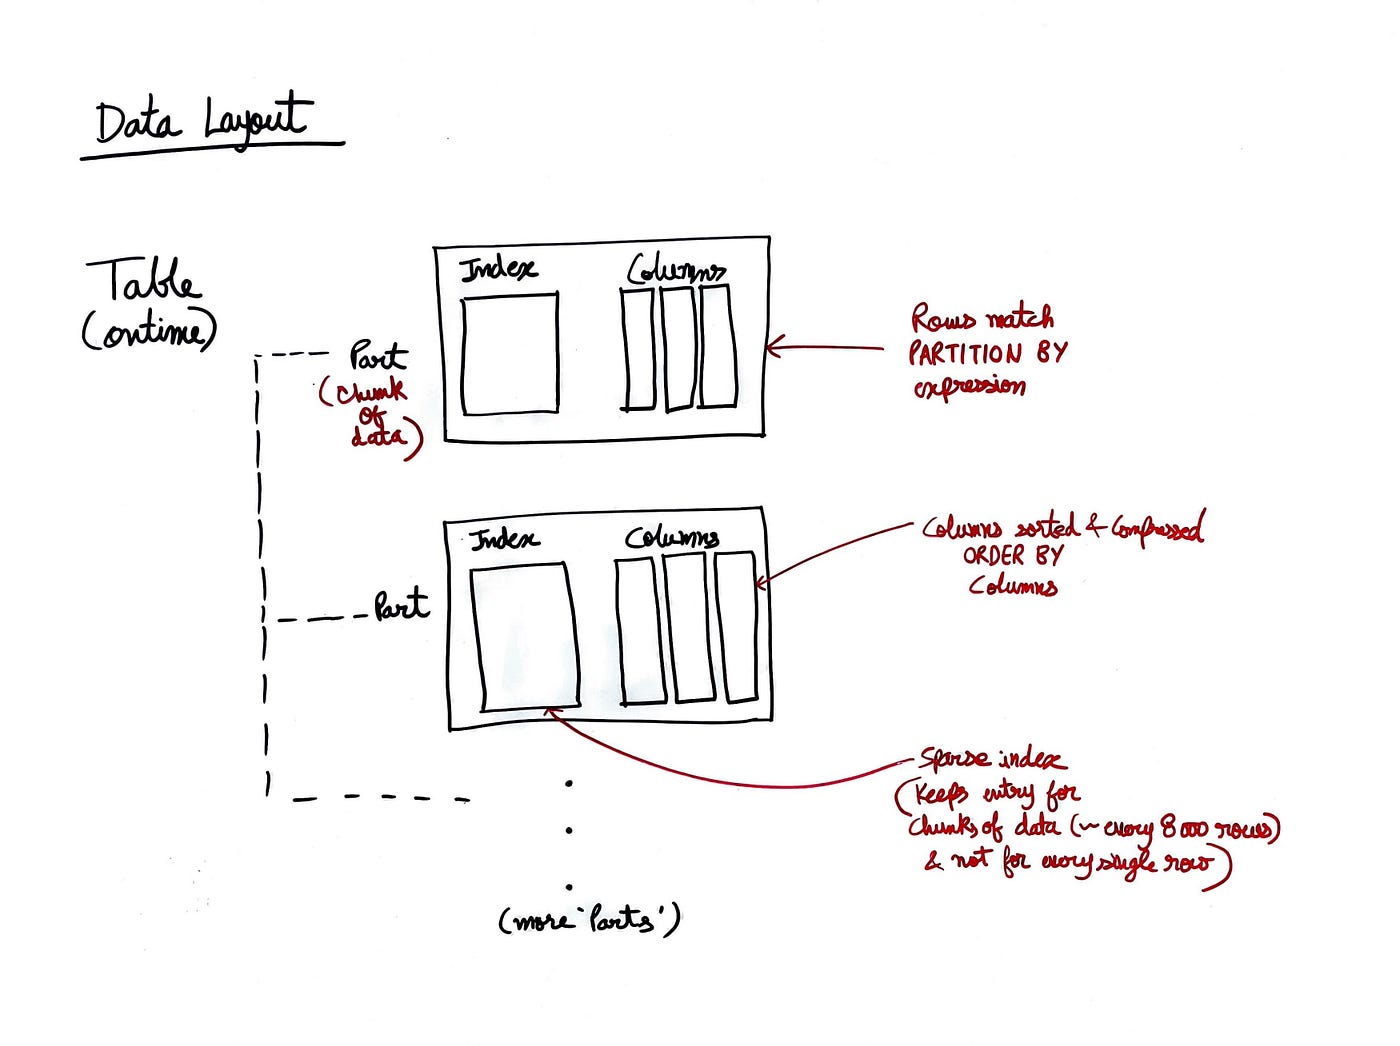 Data Layout
Table
(ontime)
Part
(Chunk
of
data)
Index
Columns
Rows match
PARTITION BY
expression
Part
Index
Columns
Columns sorted & Compressed
ORDER BY
Columns
Sparse index
(Keeps entry for
Chunks of data (~ every 8000 rows)
& not for every single row)
(more 'Parts')